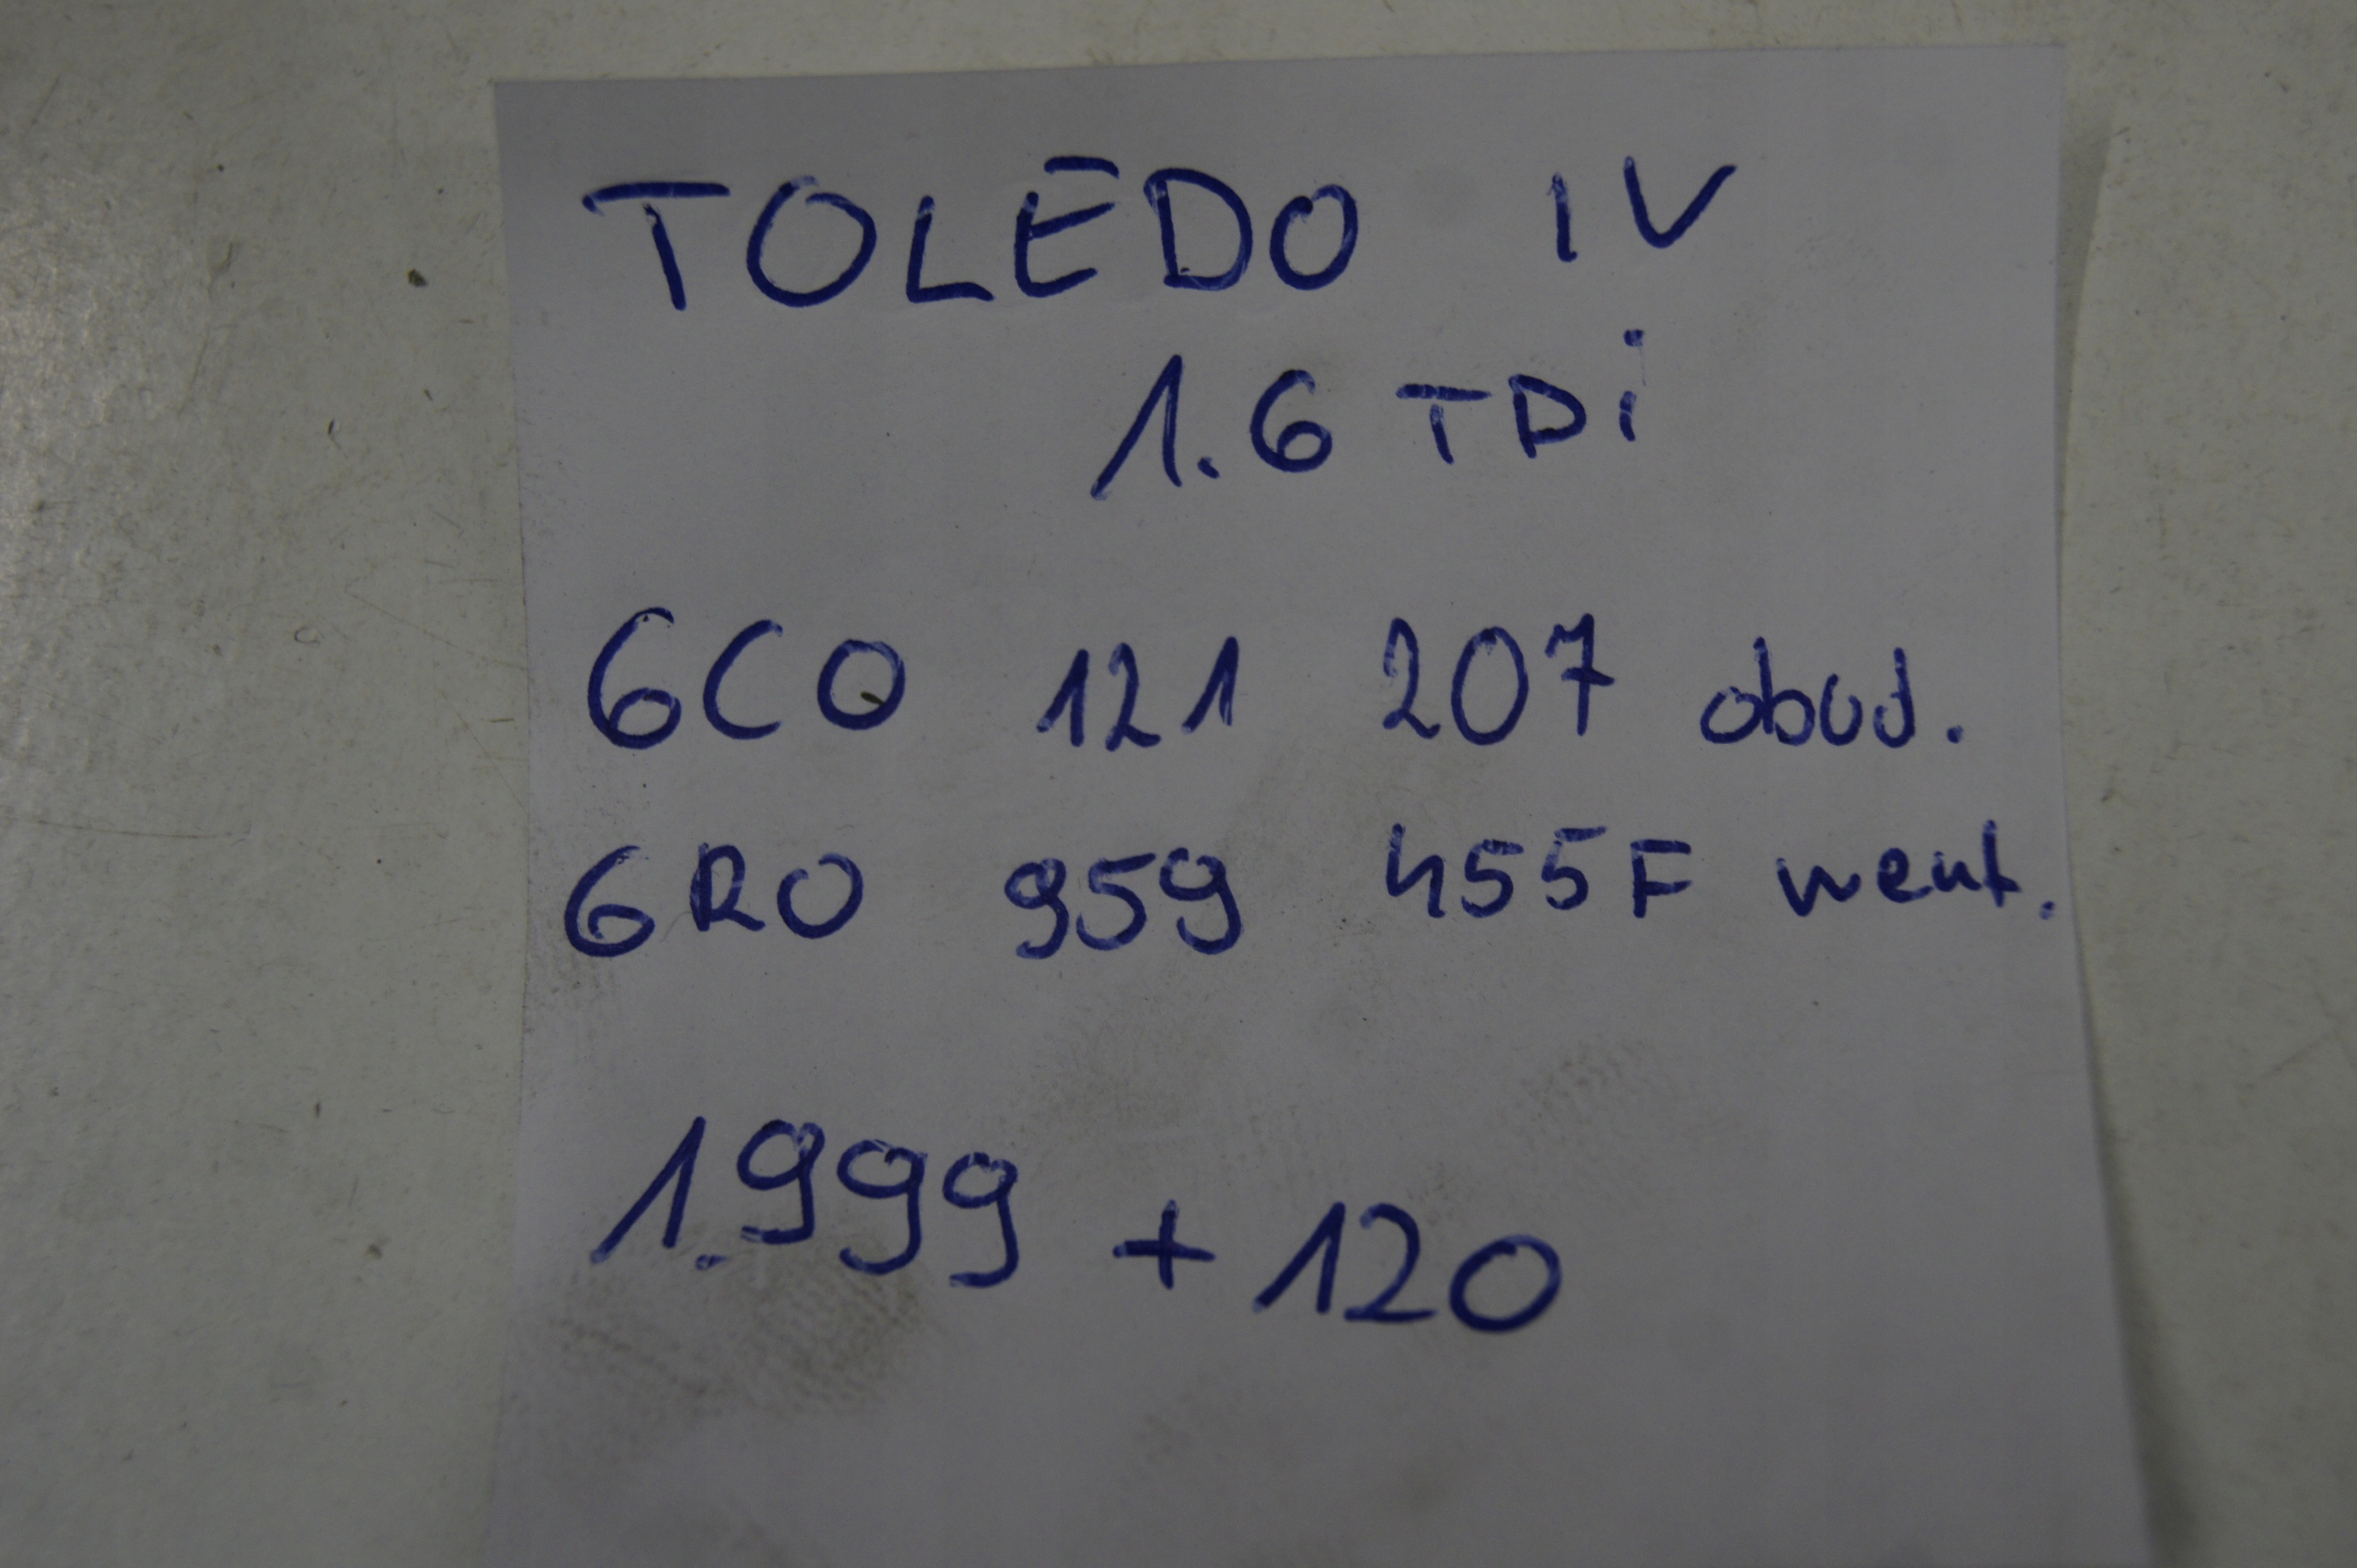 TOLEDO IV
1.6 TDi
6C0 121 207 obud.
6R0 959 455F went.
1.999 + 120